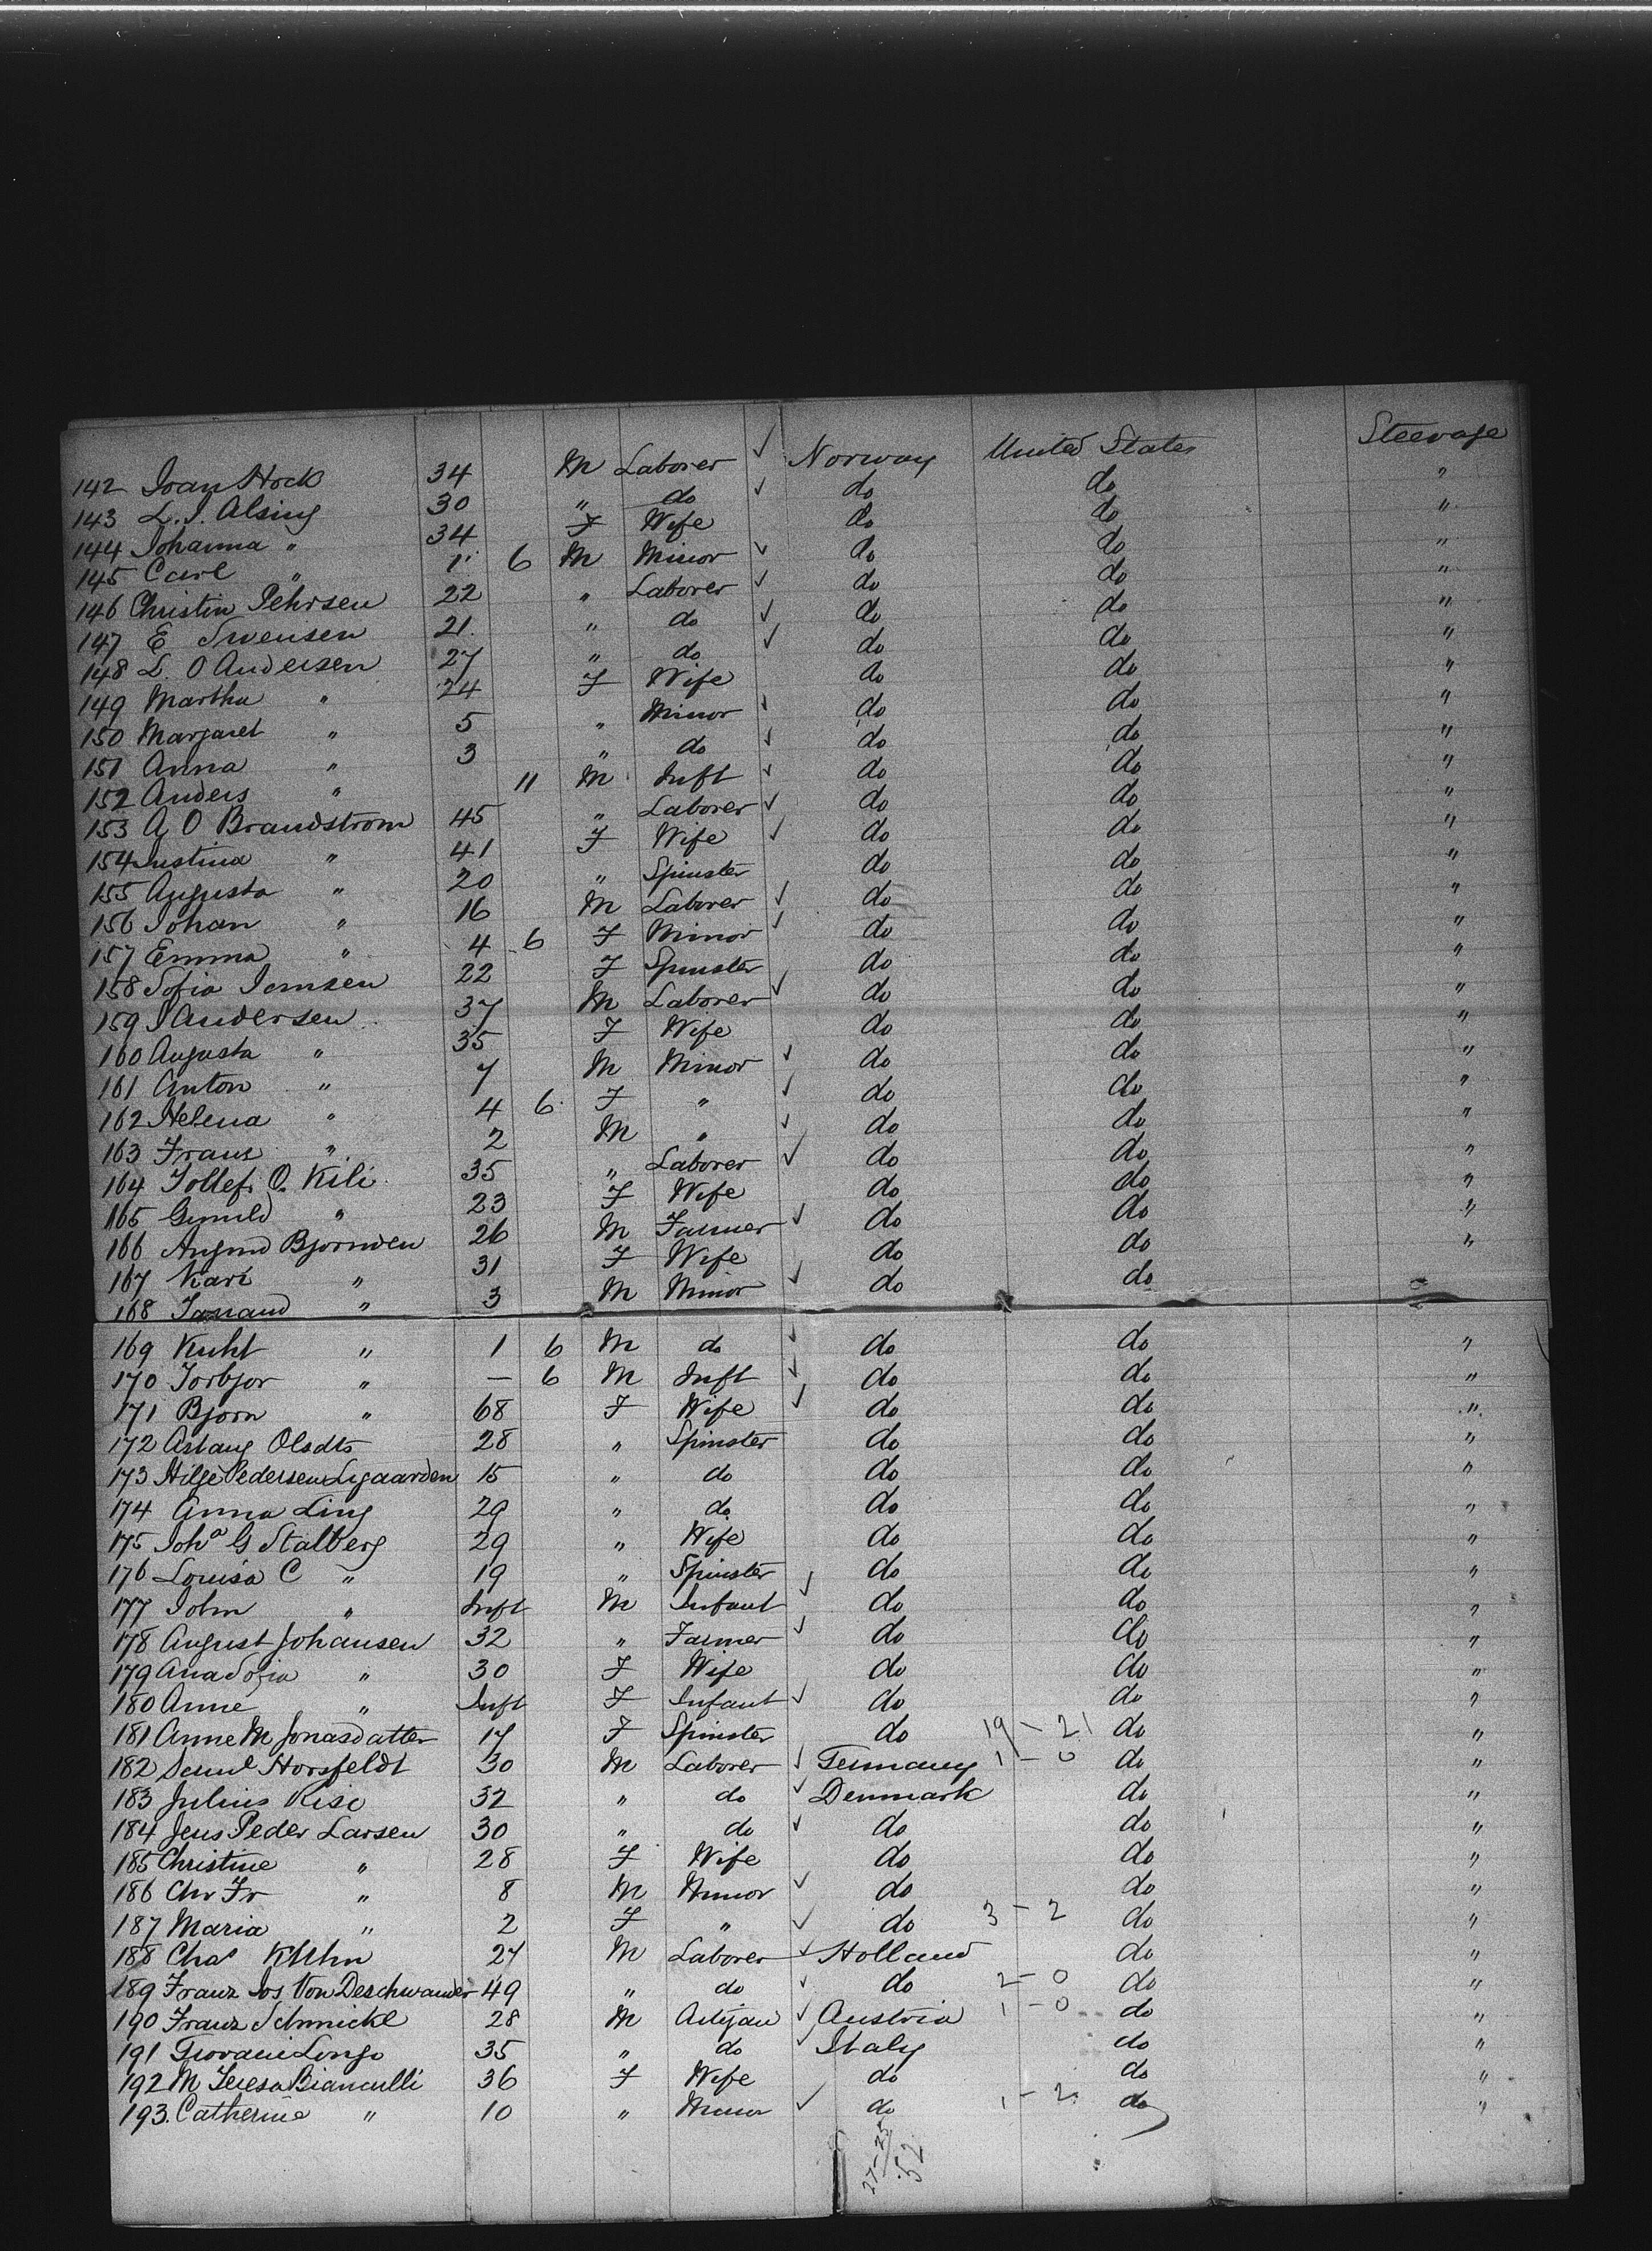 142 Ivan Hock 34 M Laborer ✓ Norway United States Steerage
143 L. J. Alsing 30 " do ✓ do do "
144 Johanna " 34 F Wife do do "
145 Carl " 1 6 M Minor ✓ do do "
146 Christin Pehrsen 22 " Laborer ✓ do do "
147 E Swensen 21 " do ✓ do do "
148 L. O Andersen 27 " do ✓ do do "
149 Martha " 24 F Wife do do "
150 Margaret " 5 " Minor ✓ do do "
151 Anna " 3 " do ✓ do do "
152 Anders " 11 M Inft ✓ do do "
153 A O Brandstrom 45 " Laborer ✓ do do "
154 Justina " 41 F Wife ✓ do do "
155 Augusta " 20 " Spinster do do "
156 Johan " 16 M Laborer ✓ do do "
157 Emma " 4 6 F Minor ✓ do do "
158 Sofia 22 F Spinster do do "
159 J Andersen 37 M Laborer ✓ do do "
160 Augusta " 35 F Wife do do "
161 Anton " 7 M Minor ✓ do do "
162 Helena " 4 6 F " ✓ do do "
163 Franz " 2 M " ✓ do do "
164 Tollef O. Kili 35 " Laborer ✓ do do "
165 " 23 F Wife do do "
166 Bjornden 26 M Farmer ✓ do do "
167 Kari " 31 F Wife do do "
168 " 3 M Minor ✓ do do
169 Knht " 1 6 M do ✓ do do "
170 Torbjor " — 6 M Inft ✓ do do "
171 Bjorn " 68 F Wife ✓ do do "
172 Aslaug Olsdts 28 " Spinster do do "
173 Hilge Pedersen Lygaarden 15 " do do do "
174 Anna Ling 29 " do do do "
175 Joha G Stalberg 29 " Wife do do "
176 Louisa C " 19 " Spinster do do "
177 John " Inft M Infant ✓ do do "
178 August Johansen 32 " Farmer ✓ do do "
179 Ana Sofia " 30 F Wife do do "
180 Anne " Inft F Infant ✓ do do "
181 Anne M Jonasdatter 17 F Spinster do 19 - 21 do "
182 Saml Horsfeldt 30 M Laborer ✓ Germany 1 - 0 do "
183 Julius Kise 32 " do ✓ Denmark do "
184 Jens Peder Larsen 30 " do ✓ do do "
185 Christine " 28 F Wife do do "
186 Chr Fr " 8 M Minor ✓ do do "
187 Maria " 2 F " ✓ do 3 - 2 do "
188 Chas Kuhn 27 M Laborer ✓ Holland do "
189 Franz Jos Von Deschwander 49 " do ✓ do 2 - 0 do "
190 Franz Schmickl 28 M Artijan ✓ Austria 1 - 0 do "
191 Giovani Longo 35 " do ✓ Italy do "
192 M Teresa Bianculli 36 F Wife do do "
193. Catherine " 10 " Minor ✓ do 1 - 2 do "
27-25
52